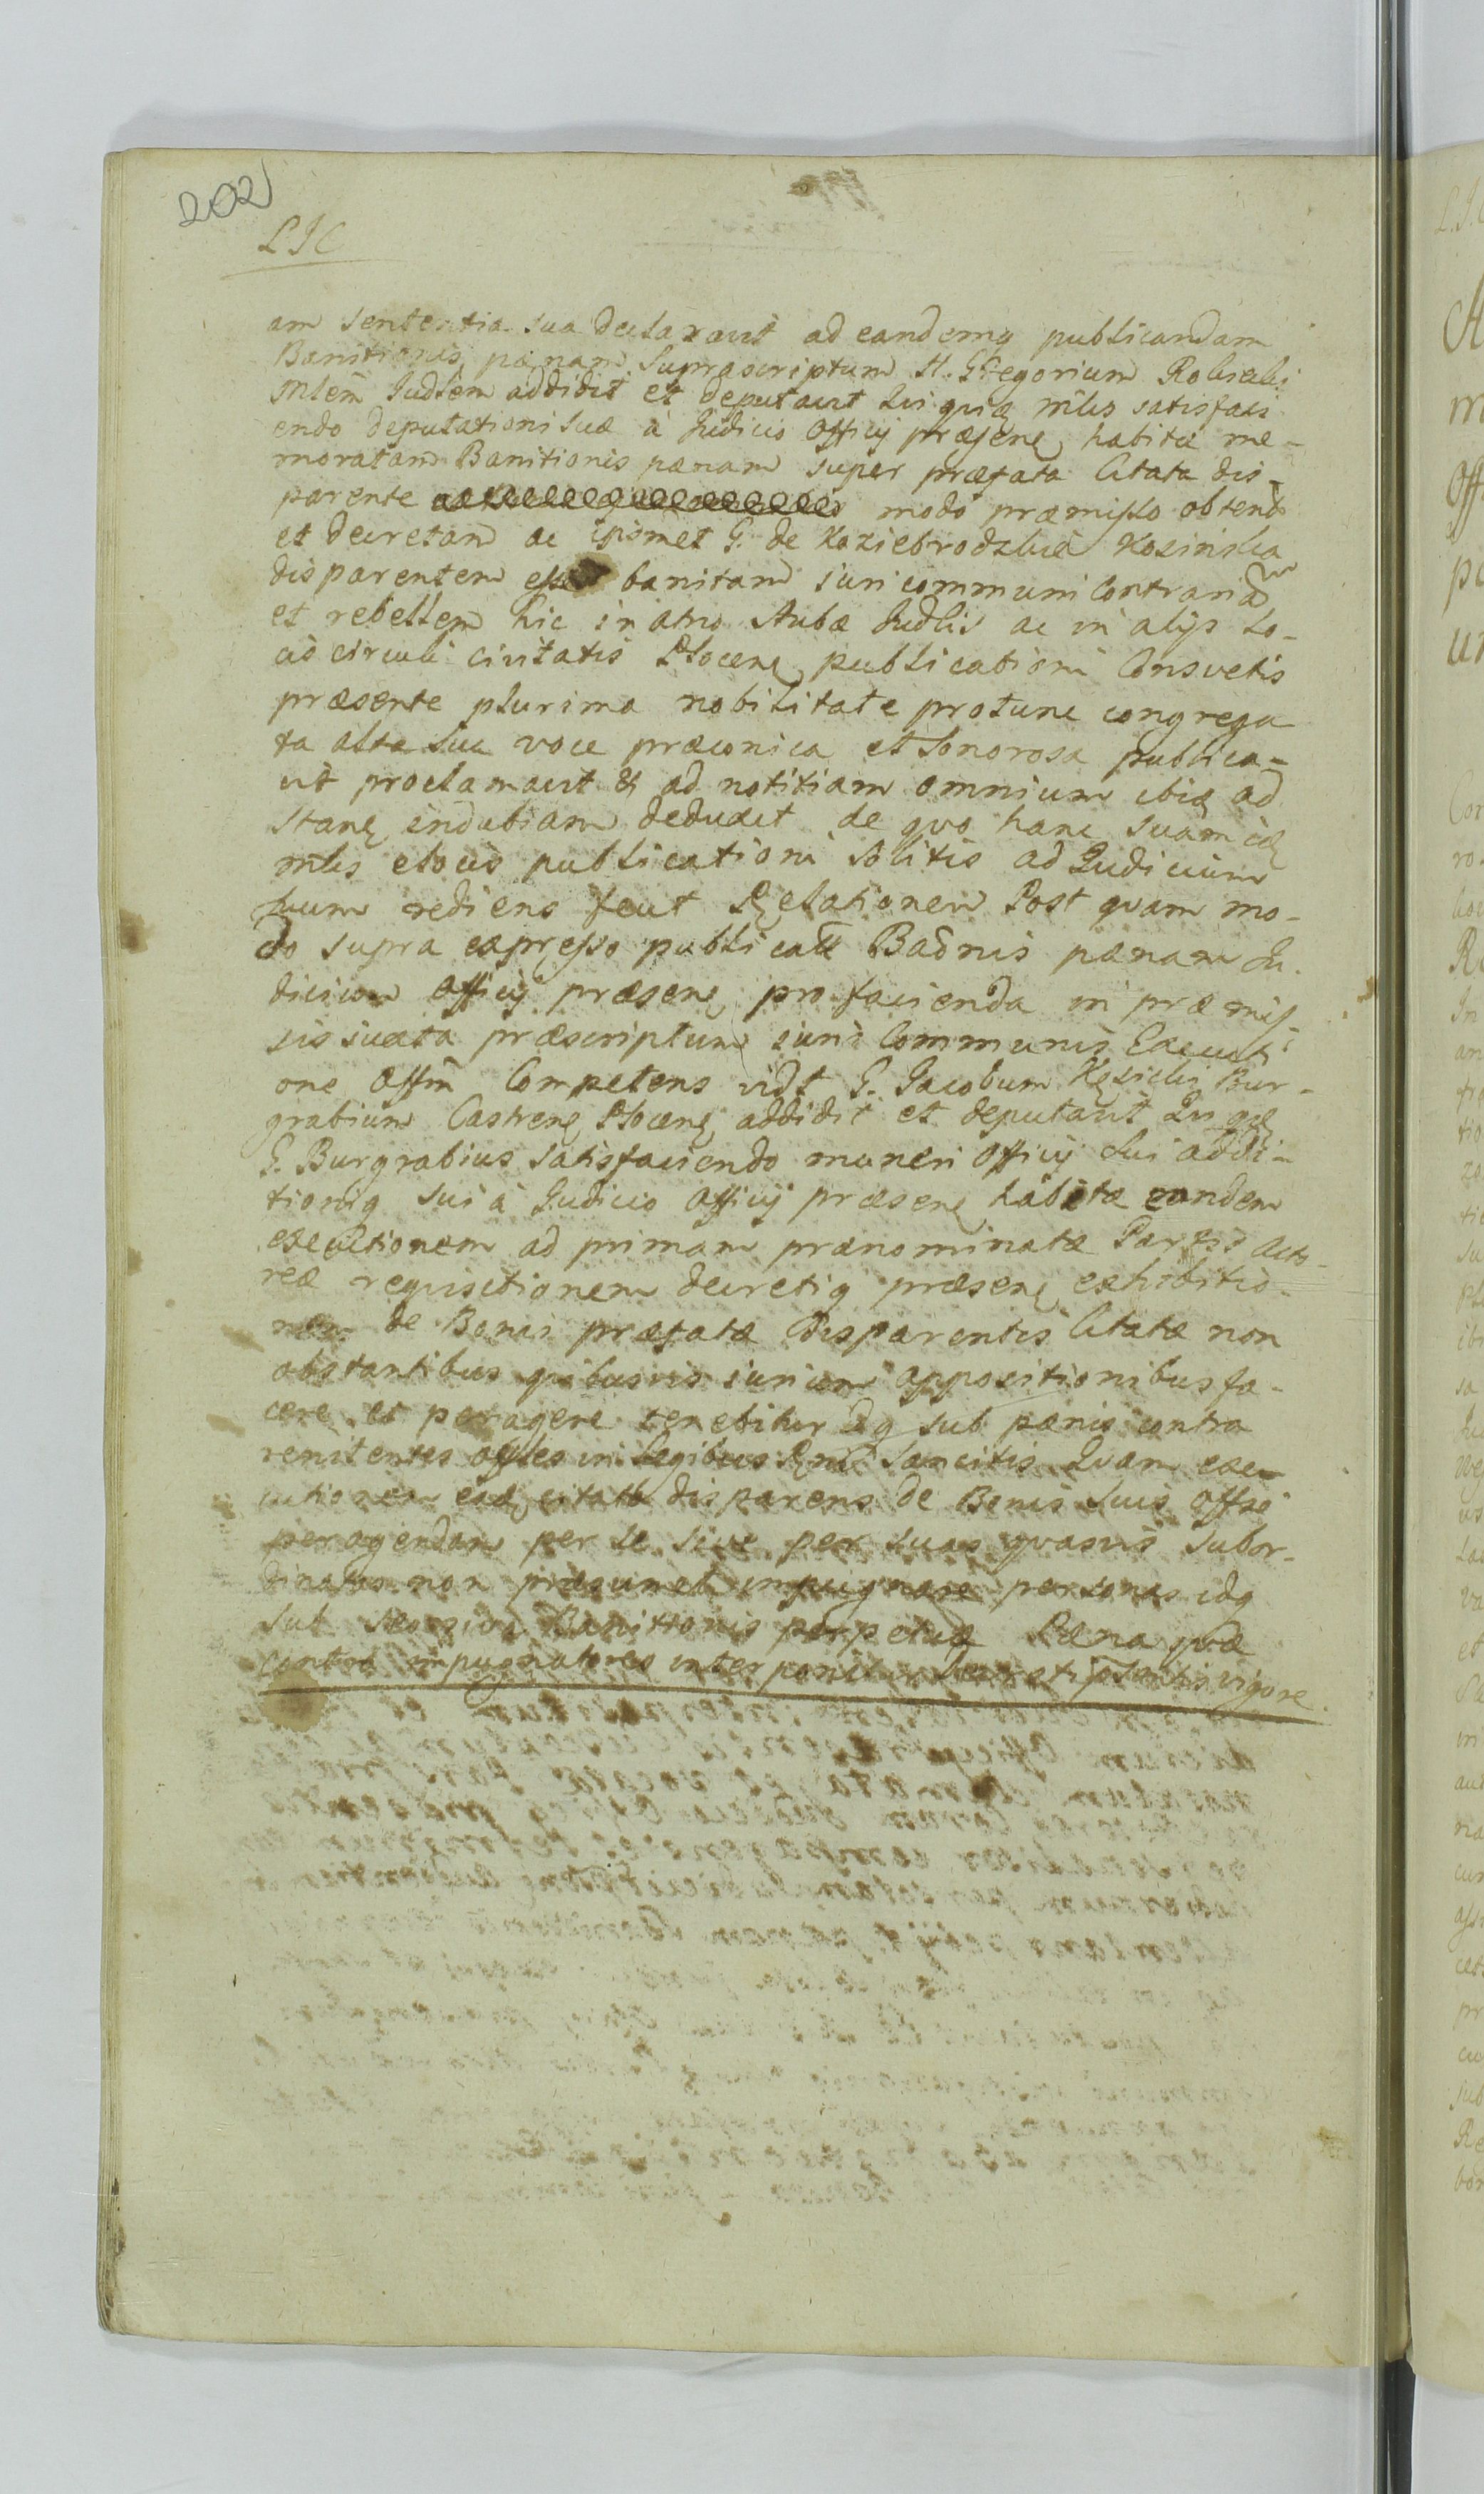 202
LJC
am sententia sua declaravit ad eandemq publicandam
Banitionis pænam suprascriptum H. Gregorium
Mlem Judlem addidit et deputavit Qui quiđ mlis satisfaci
endo deputationi suæ à Judicio Officij præsenę habitæ me-
moratam Banitionis pænam super præfata Citata dis-
parente modo præmisso obtend
et decretam ac ipsmet G. de Koziebrodzkie Kosinska
disparentem esse banitam iuri communi Contrariam
et rebellem hic in atrio Stubæ Judlis ac in alijs lo-
cis circuli civitatis Plocenę publicationi Consvetis
præsente plurima nobilitate protunc congrega
ta alta sua voce præconica et sonorosa publica-
vit proclamavit & ad notitiam omnium ibiq ad
stanę indubiam deduxit de quo hanc suam
mlis e locis publicationi solitis ad Judicium
suum rediens fecit Relationem Post quam mo-
do supra expresso publicatæ Badnis pænam Ju-
dicium Officij præsenę pro facienda in præmis-
sis iuxta præscriptum iuris Communis Executi
one Offm Competens vidt G. Jacobum Kęsicki Bur-
grabium Castrenę Plocenę addidit et deputavit Qui qđ
G. Burgrabius satisfaciendo muneri Officij sui addi-
tioniq sui à Judicio Officij præsenę habitæ eandem
executionem ad primam prænominatæ Partis Acto-
reæ requisitionem decretiq præsenę exhibitio-
nem de Bonis præfatæ Disparentis Citatæ non
obstantibus qbusvis iurium oppositionibus fa-
cere et peragere tenebitur Idq sub pænis contra
renitentes offles in Legibus Rni sancitis Quam exe
cutionem eađ citata disparens de Bonis suis Offse
peragendam per se sive per suas quasvis subor-
dinatas non præsumet impugnare personas idq
sub seorsiva Banitionis perpetuæ Pæna quæ
contra impugnatores interponitur decreti psentis vigore